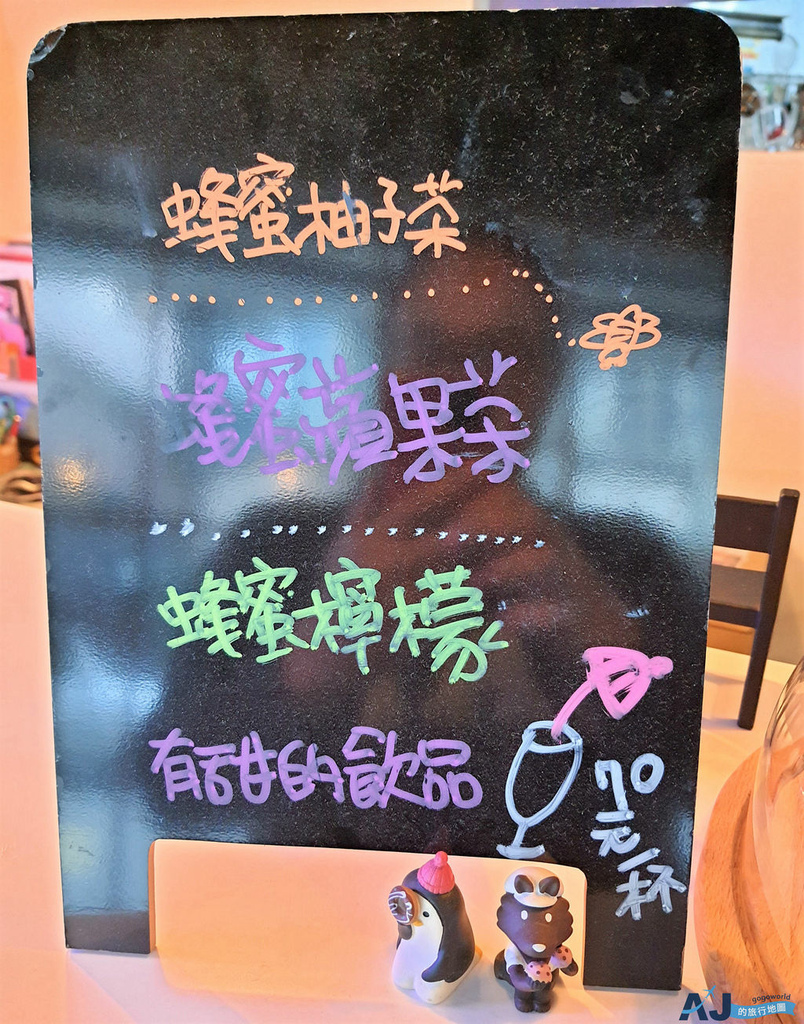 蜂蜜柚子茶
蜂蜜蘋果茶
蜂蜜檸檬
有甜的飲品
70
元/杯
AJ
gogoworld
的旅行地圖